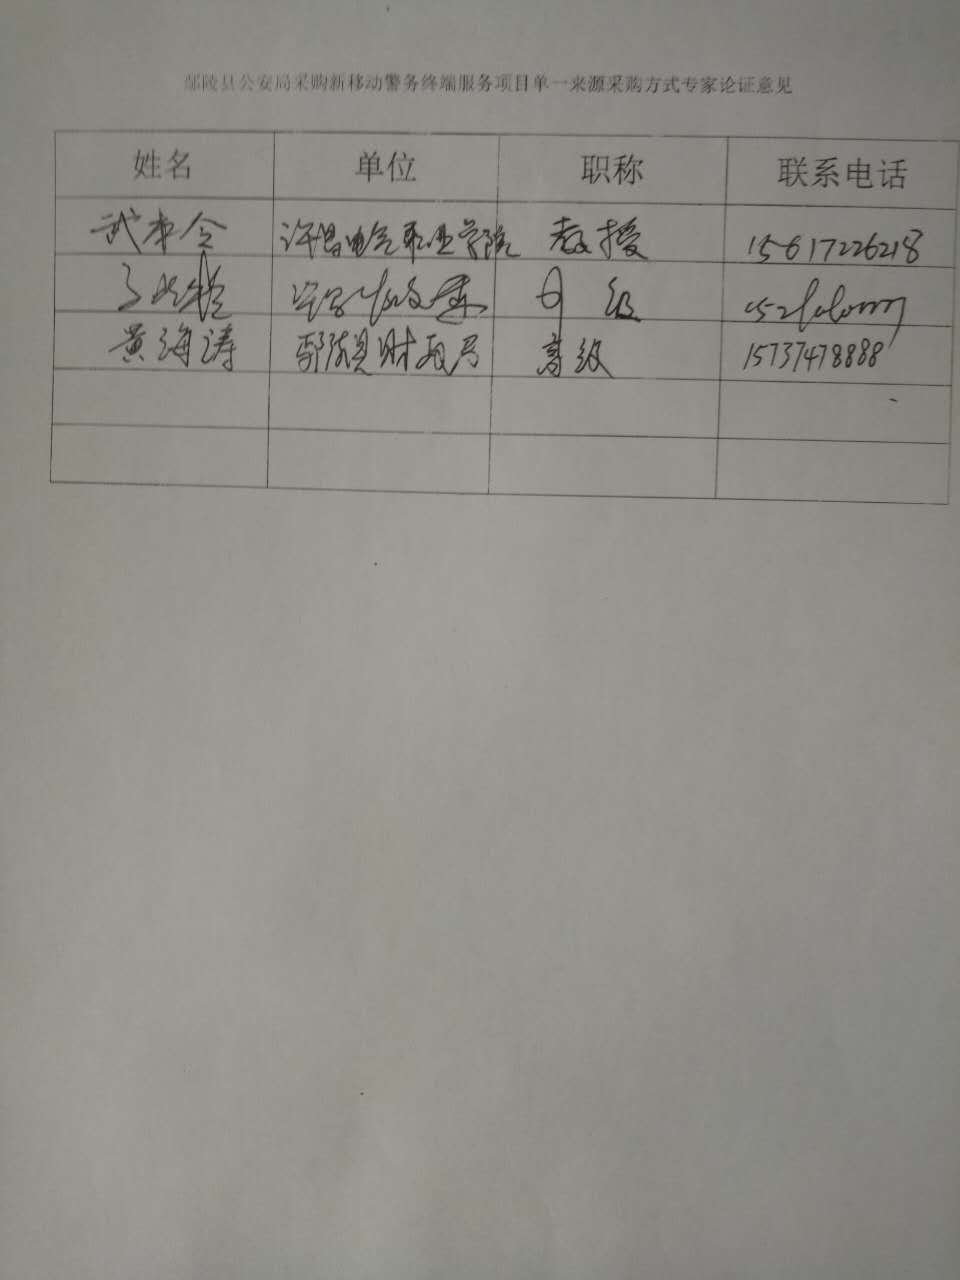 鄢陵县公安局采购新移动警务终端服务项目单一来源采购方式专家论证意见
姓名 单位 职称 联系电话
武本令 许昌电气职业学院 教授 15617226218
级
黄海涛 鄢陵县财政局 高级 15737478888